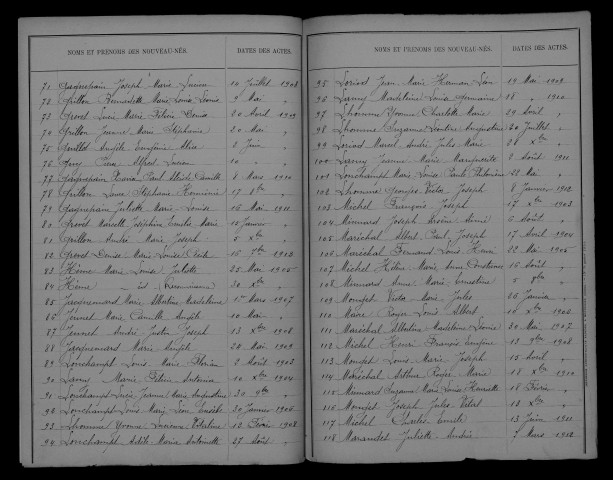 NOMS ET PRÉNOMS DES NOUVEAU-NÉS. DATES DES ACTES.
71 Gagnepain Joseph Marie Lucien 14 Juillet 1908
72 Grillon Bernadette Marie Louise Léonie 9 Mai "
73 Grod Lucie Marie Félicie 20 Avril 1909
74 Grillon Jeanne Marie Stéphanie 20 Mai "
75 Angèle Eugénie Alice 2 Juin "
76 Alfred Lucien 10 " "
77 Gagnepain Maria Paul Camille 8 Mars 1910
78 Grillon Louis Stéphanie 17 8bre "
79 Gagnepain Juliette Marie Louise 15 Mai 1911
80 Marcelle Joséphine Marie 15 Janvier "
81 Grillon André Marie Joseph 5 Xbre "
82 Denise Marie Louise 15 1903
83 Hême Marie Louise Juliette 25 Mai 1905
84 Hême 30 Xbre "
85 Jacquemard Marie Albertine Madeleine 1er Mars 1907
86 Jeunet Marie Camille Angèle 10 Mai "
87 Jeunet André Justin Joseph 13 Xbre 1908
88 Jacquemard Marie Angèle 20 Mai 1909
89 Lonchampt Louis Marie Florian 2 Août 1903
90 Lamy Marie Félicie Antonia 10 Xbre 1904
91 Lonchampt Jeanne Marie Augustine 30 9bre "
92 Lonchampt Louis Marie Léon 20 Janvier 1906
93 Lhomme Yvonne 12 Février 1908
94 Lonchampt Adèle Maria Antoinette 27 Août "
NOMS ET PRÉNOMS DES NOUVEAU-NÉS. DATES DES ACTES.
95 Loriod Jean Marie Herman Léon 14 Mai 1909
96 Lamy Madeleine Louise Germaine 18 " 1910
97 Lhomme Yvonne Charlotte Marie 29 Avril "
98 Lhomme Suzanne Augustine 20 Juillet "
99 Loriod Marcel André Jules Marie 28 Xbre "
100 Lamy Jeanne Marie Marguerite 8 Août 1911
101 Lonchampt Marie Louise Paule Philomène 22 Mai "
102 Lhomme Georges Victor Joseph 8 Janvier 1912
103 Michel François Joseph 17 Xbre 1903
104 Monnard Joseph 6 Août "
105 Maréchal Albert Paul Joseph 17 Avril 1904
106 Maréchal Fernand Louis Henri 22 Mai 1905
107 Michel Hélène Marie Anne Constance 16 Août "
108 Monnard Anne Marie Ernestine 5 9bre "
109 Monget Victor Marie Jules 26 Janvier "
110 Maire Roger Louis Albert 10 Xbre 1906
111 Maréchal Albertine Madeleine Léonie 30 Mai 1907
112 Michel Henri François Eugène 13 9bre 1908
113 Monget Louis Marie Joseph 15 Avril "
114 Maréchal Arthur Roger Marie 18 Xbre 1910
115 Monnard Suzanne Marie Louise Henriette 18 Février "
116 Monget Joseph Jules Vital 13 Xbre "
117 Michel Charles Emile 13 Juin 1911
118 Marandet Juliette 7 Mars 1912